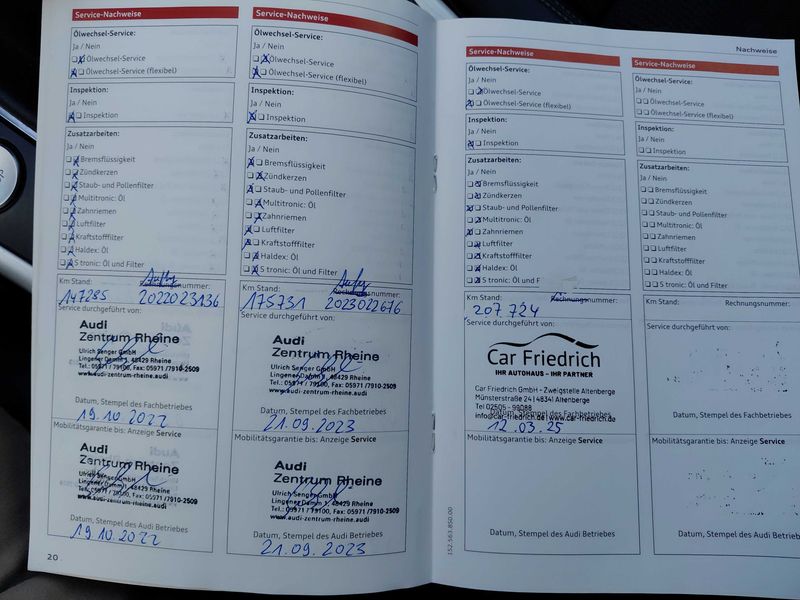 Service-Nachweise
Ölwechsel-Service:
Ja / Nein
Ölwechsel-Service
Ölwechsel-Service (flexibel)
Inspektion:
Ja / Nein
Inspektion
Zusatzarbeiten:
Ja / Nein
Bremsflüssigkeit
Zündkerzen
Staub- und Pollenfilter
Multitronic: Öl
Zahnriemen
Luftfilter
Kraftstofffilter
Haldex: Öl
S tronic: Öl und Filter
Km Stand:
147285
2022023136
Service durchgeführt von:
Audi
Zentrum Rheine
Ulrich Senger GmbH
Lingener Damm 1, 48429 Rheine
Tel.: 05971 / 79100, Fax: 05971 /7910-2509
www.audi-zentrum-rheine.audi
Datum, Stempel des Fachbetriebes
19.10.2022
Mobilitätsgarantie bis: Anzeige Service
Audi
Zentrum Rheine
Ulrich Senger GmbH
Lingener Damm 1, 48429 Rheine
Tel.: 05971 / 79100, Fax: 05971 /7910-2509
www.audi-zentrum-rheine.audi
Datum, Stempel des Audi Betriebes
19.10.2022
20
Service-Nachweise
Ölwechsel-Service:
Ja / Nein
Ölwechsel-Service
Ölwechsel-Service (flexibel)
Inspektion:
Ja / Nein
Inspektion
Zusatzarbeiten:
Ja / Nein
Bremsflüssigkeit
Zündkerzen
Staub- und Pollenfilter
Multitronic: Öl
Zahnriemen
Luftfilter
Kraftstofffilter
Haldex: Öl
S tronic: Öl und Filter
Km Stand:
175731
2023022676
Service durchgeführt von:
Audi
Zentrum Rheine
Ulrich Senger GmbH
Lingener Damm 1, 48429 Rheine
Tel.: 05971 / 79100, Fax: 05971 /7910-2509
www.audi-zentrum-rheine.audi
Datum, Stempel des Fachbetriebes
21.09.2023
Mobilitätsgarantie bis: Anzeige Service
Audi
Zentrum Rheine
Ulrich Senger GmbH
Lingener Damm 1, 48429 Rheine
Tel.: 05971 / 79100, Fax: 05971 /7910-2509
www.audi-zentrum-rheine.audi
Datum, Stempel des Audi Betriebes
21.09.2023
Nachweise
Service-Nachweise
Ölwechsel-Service:
Ja / Nein
Ölwechsel-Service
Ölwechsel-Service (flexibel)
Inspektion:
Ja / Nein
Inspektion
Zusatzarbeiten:
Ja / Nein
Bremsflüssigkeit
Zündkerzen
Staub- und Pollenfilter
Multitronic: Öl
Zahnriemen
Luftfilter
Kraftstofffilter
Haldex: Öl
S tronic: Öl und F
Km Stand:
Rechnungsnummer:
207.724
Service durchgeführt von:
Car Friedrich
IHR AUTOHAUS - IHR PARTNER
Car Friedrich GmbH - Zweigstelle Altenberge
Münsterstraße 24 | 48341 Altenberge
Tel 02505 - 99088
Datum, Stempel des Fachbetriebes
info@car-friedrich.de www.car-friedrich.de
12.03.25
Mobilitätsgarantie bis: Anzeige Service
Datum, Stempel des Audi Betriebes
152.563.850.00
Service-Nachweise
Ölwechsel-Service:
Ja / Nein
Ölwechsel-Service
Ölwechsel-Service (flexibel)
Inspektion:
Ja / Nein
Inspektion
Zusatzarbeiten:
Ja / Nein
Bremsflüssigkeit
Zündkerzen
Staub- und Pollenfilter
Multitronic: Öl
Zahnriemen
Luftfilter
Kraftstofffilter
Haldex: Öl
S tronic: Öl und Filter
Km Stand:
Rechnungsnummer:
Service durchgeführt von:
Datum, Stempel des Fachbetriebes
Mobilitätsgarantie bis: Anzeige Service
Datum, Stempel des Audi Betriebes